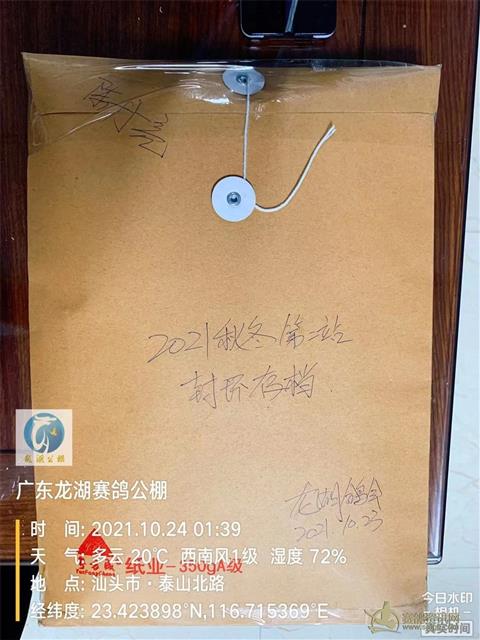 2021秋冬第二站
封环存档
龙湖鸽会
2021.10.23
龙湖公棚
广东龙湖赛鸽公棚
时 间: 2021.10.24 01:39
天 气: 多云 20℃ 西南风1级 湿度 72%
纸业-350gA级
地 点: 汕头市·泰山北路
经纬度: 23.423898°N,116.715369°E
今日水印
相机
真实时间